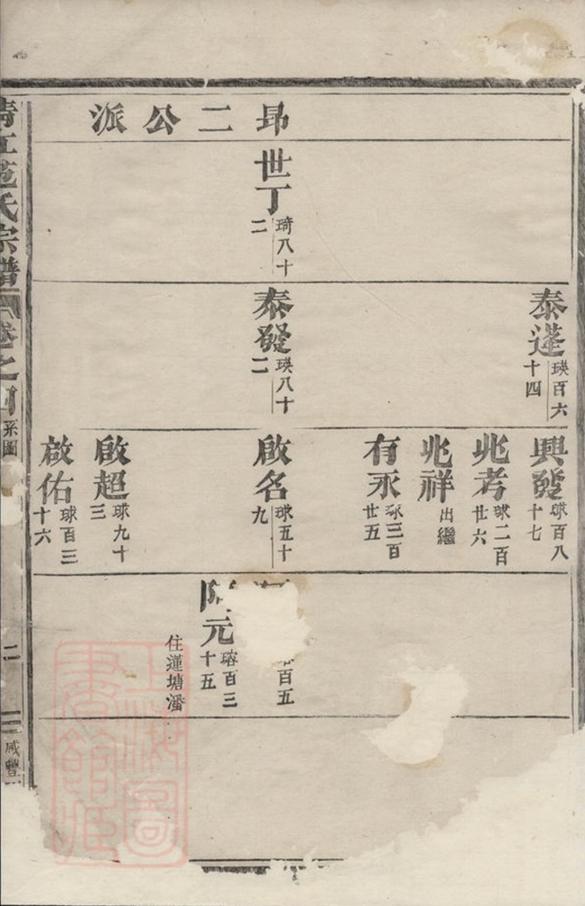 昻二公派
世丁
琦八十
二
泰蓬
瑛百六
十四
泰發
瑛八十
二
興發
球百八
十七
兆考
球二百
廿六
兆祥
出繼
有永
球三百
廿五
啟名
球五十
九
啟超
球九十
三
啟佑
球百三
十六
百五
元
瑢百三
十五
住蓮塘潘
范氏宗譜
卷之四
系圖
二
咸豐